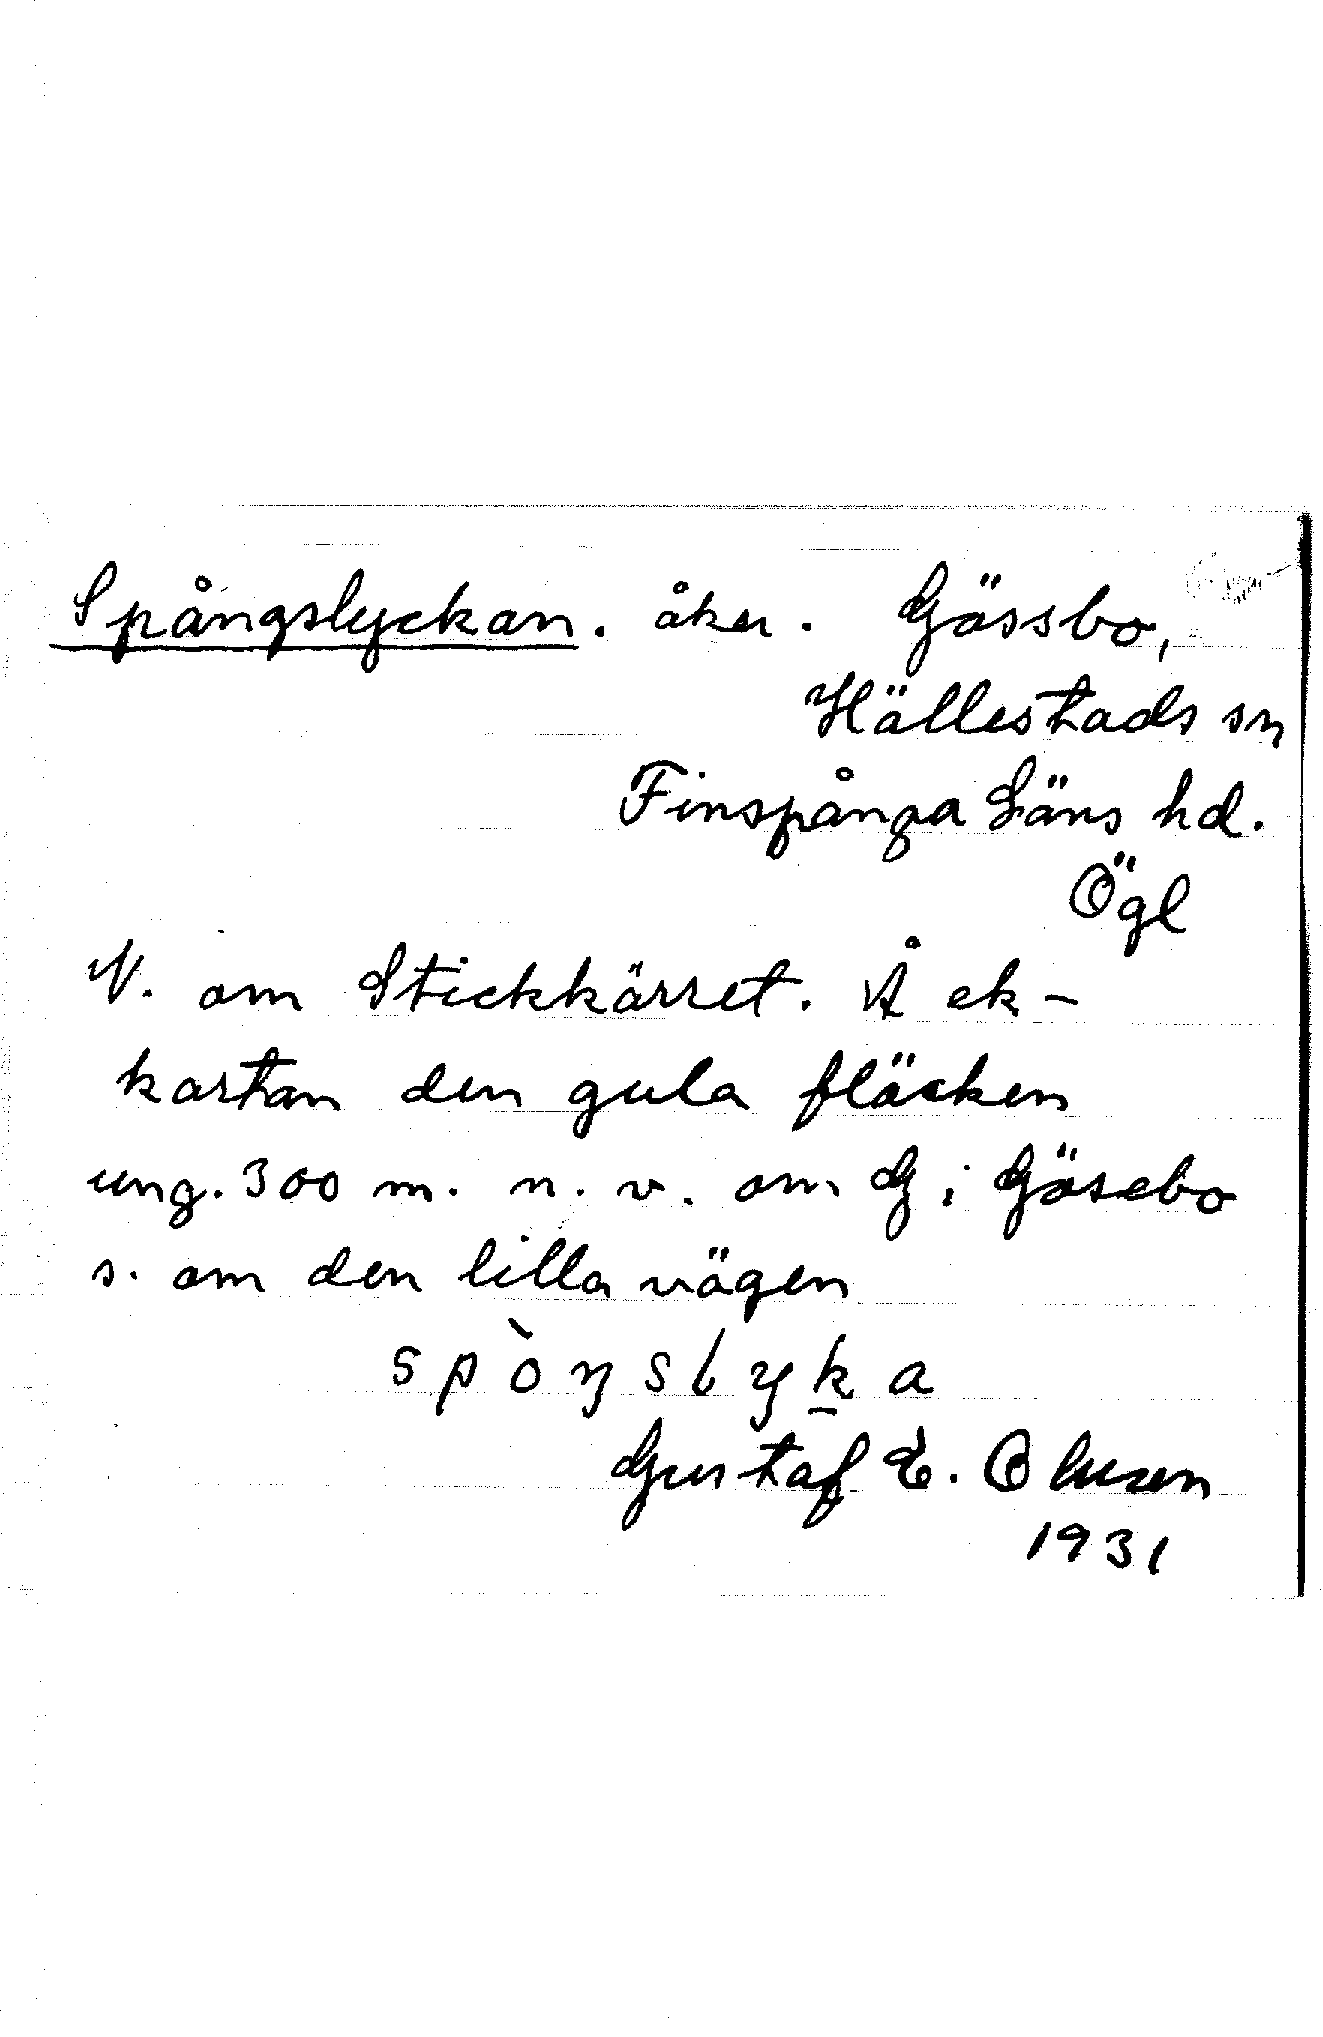 Spångslyckan. åker. Gössbo,
Hällestads sn
Finspånga Läns hd.
Ögl
N. om Stickkärret. Å ek-
kartan den gula fläcken
ung. 300 m. n. v. om G i Gösebo
s. om den lilla vägen
spòŋslyka
Gustaf E. Oluzen
1931